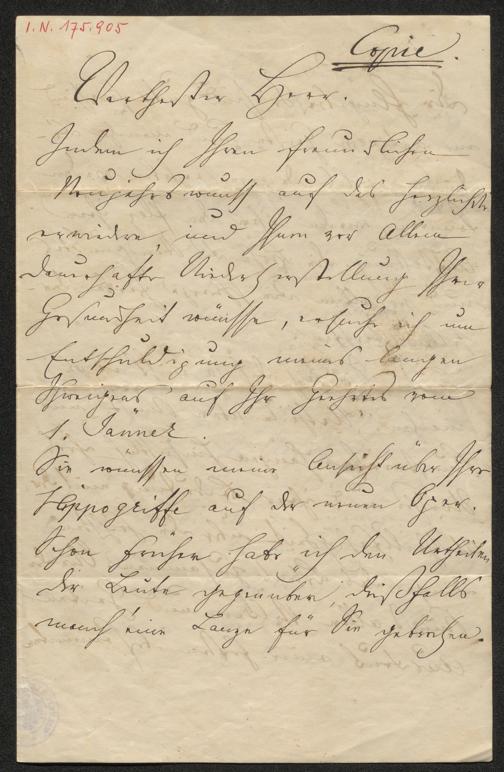 I.N. 175.905
Copie.
Werthester Herr.
Indem ich Ihren freundlichen
Neujahrswunsch auf das herzlichste
erwiedere, und Ihnen vor Allem
dauerhafte Wiederherstellung Ihrer
Gesundheit wünsche, ersuche ich um
Entschuldigung meines langen
Schweigens auf Ihr Geehrtes vom
1. Jänner.
Sie wünschen meine Ansicht über Ihre
Hippogriffe auf der neuen Oper.
Schon früher habe ich den Urtheilen
der Leute gegenüber, dießfalls
manch' eine Lanze für Sie gebrochen.